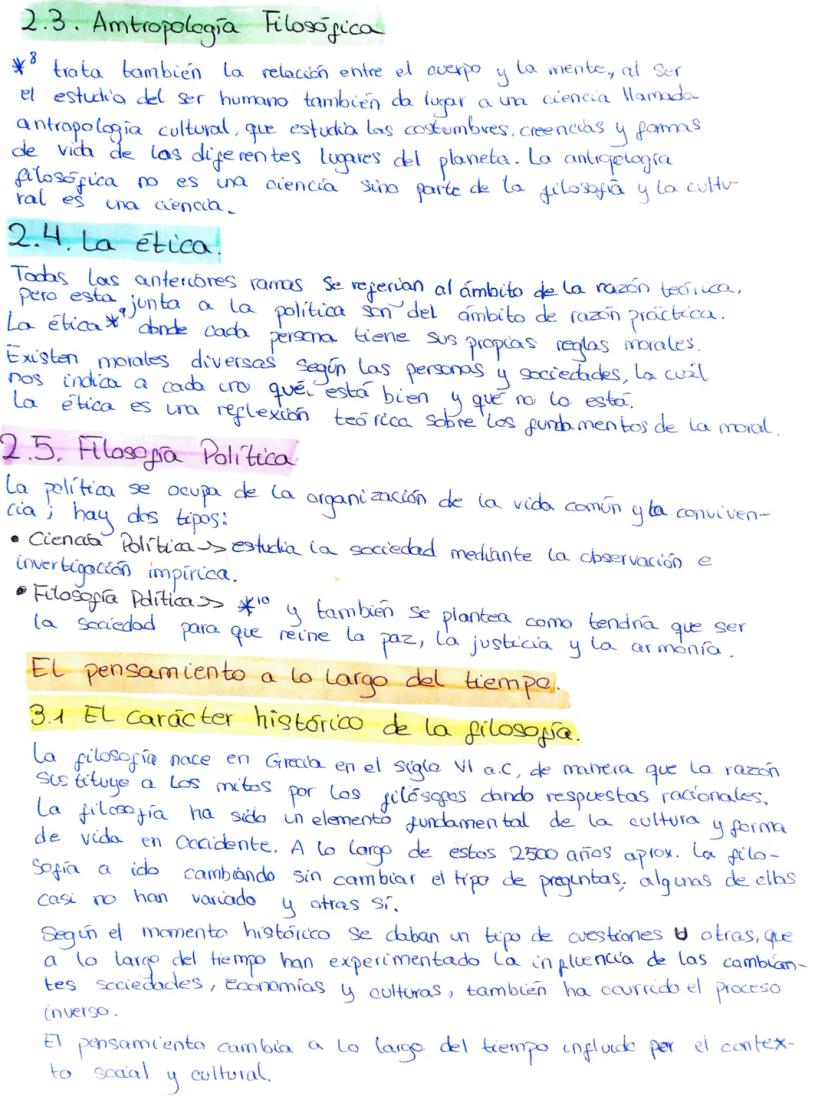 2.3. Amtropología Filosófica
*⁸ trata también la relación entre el cuerpo y la mente, al ser
el estudio del ser humano también da lugar a una ciencia llamada
antropología cultural, que estudia las costumbres, creencias y formas
de vida de los diferentes lugares del planeta. La antropología
filosófica no es una ciencia sino parte de la filosofía y la cultu-
ral es una ciencia.
2.4. La ética.
Todas las anteriores ramas se referían al ámbito de la razón teórica,
pero esta junta a la política son del ámbito de razón práctica.
La ética *⁹ donde cada persona tiene sus propias reglas morales.
Existen morales diversas según las personas y sociedades, la cuál
nos indica a cada uno qué está bien y qué no lo está.
La ética es una reflexión teórica sobre los fundamentos de la moral.
2.5. Filosofía Política
La política se ocupa de la organización de la vida común y la conviven-
cia; hay dos tipos:
• Ciencia Política -> estudia la sociedad mediante la observación e
invertigación impírica.
• Filosofía Política -> *¹⁰ y también se plantea como tendría que ser
la sociedad para que reine la paz, la justicia y la armonía.
El pensamiento a lo largo del tiempo.
3.1 El carácter histórico de la filosofía.
La filosofía nace en Grecia en el siglo VI a.C, de manera que la razón
sustituye a los mitos por los filósofos dando respuestas racionales.
La filosofía ha sido un elemento fundamental de la cultura y forma
de vida en Occidente. A lo largo de estos 2500 años aprox. la filo-
sofía a ido cambiando sin cambiar el tipo de preguntas; algunas de ellas
casi no han variado y otras sí.
Según el momento histórico se daban un tipo de cuestiones u otras, que
a lo largo del tiempo han experimentado la influencia de las cambian-
tes sociedades, economías y culturas, también ha ocurrido el proceso
inverso.
El pensamiento cambia a lo largo del tiempo influido por el contex-
to social y cultural.